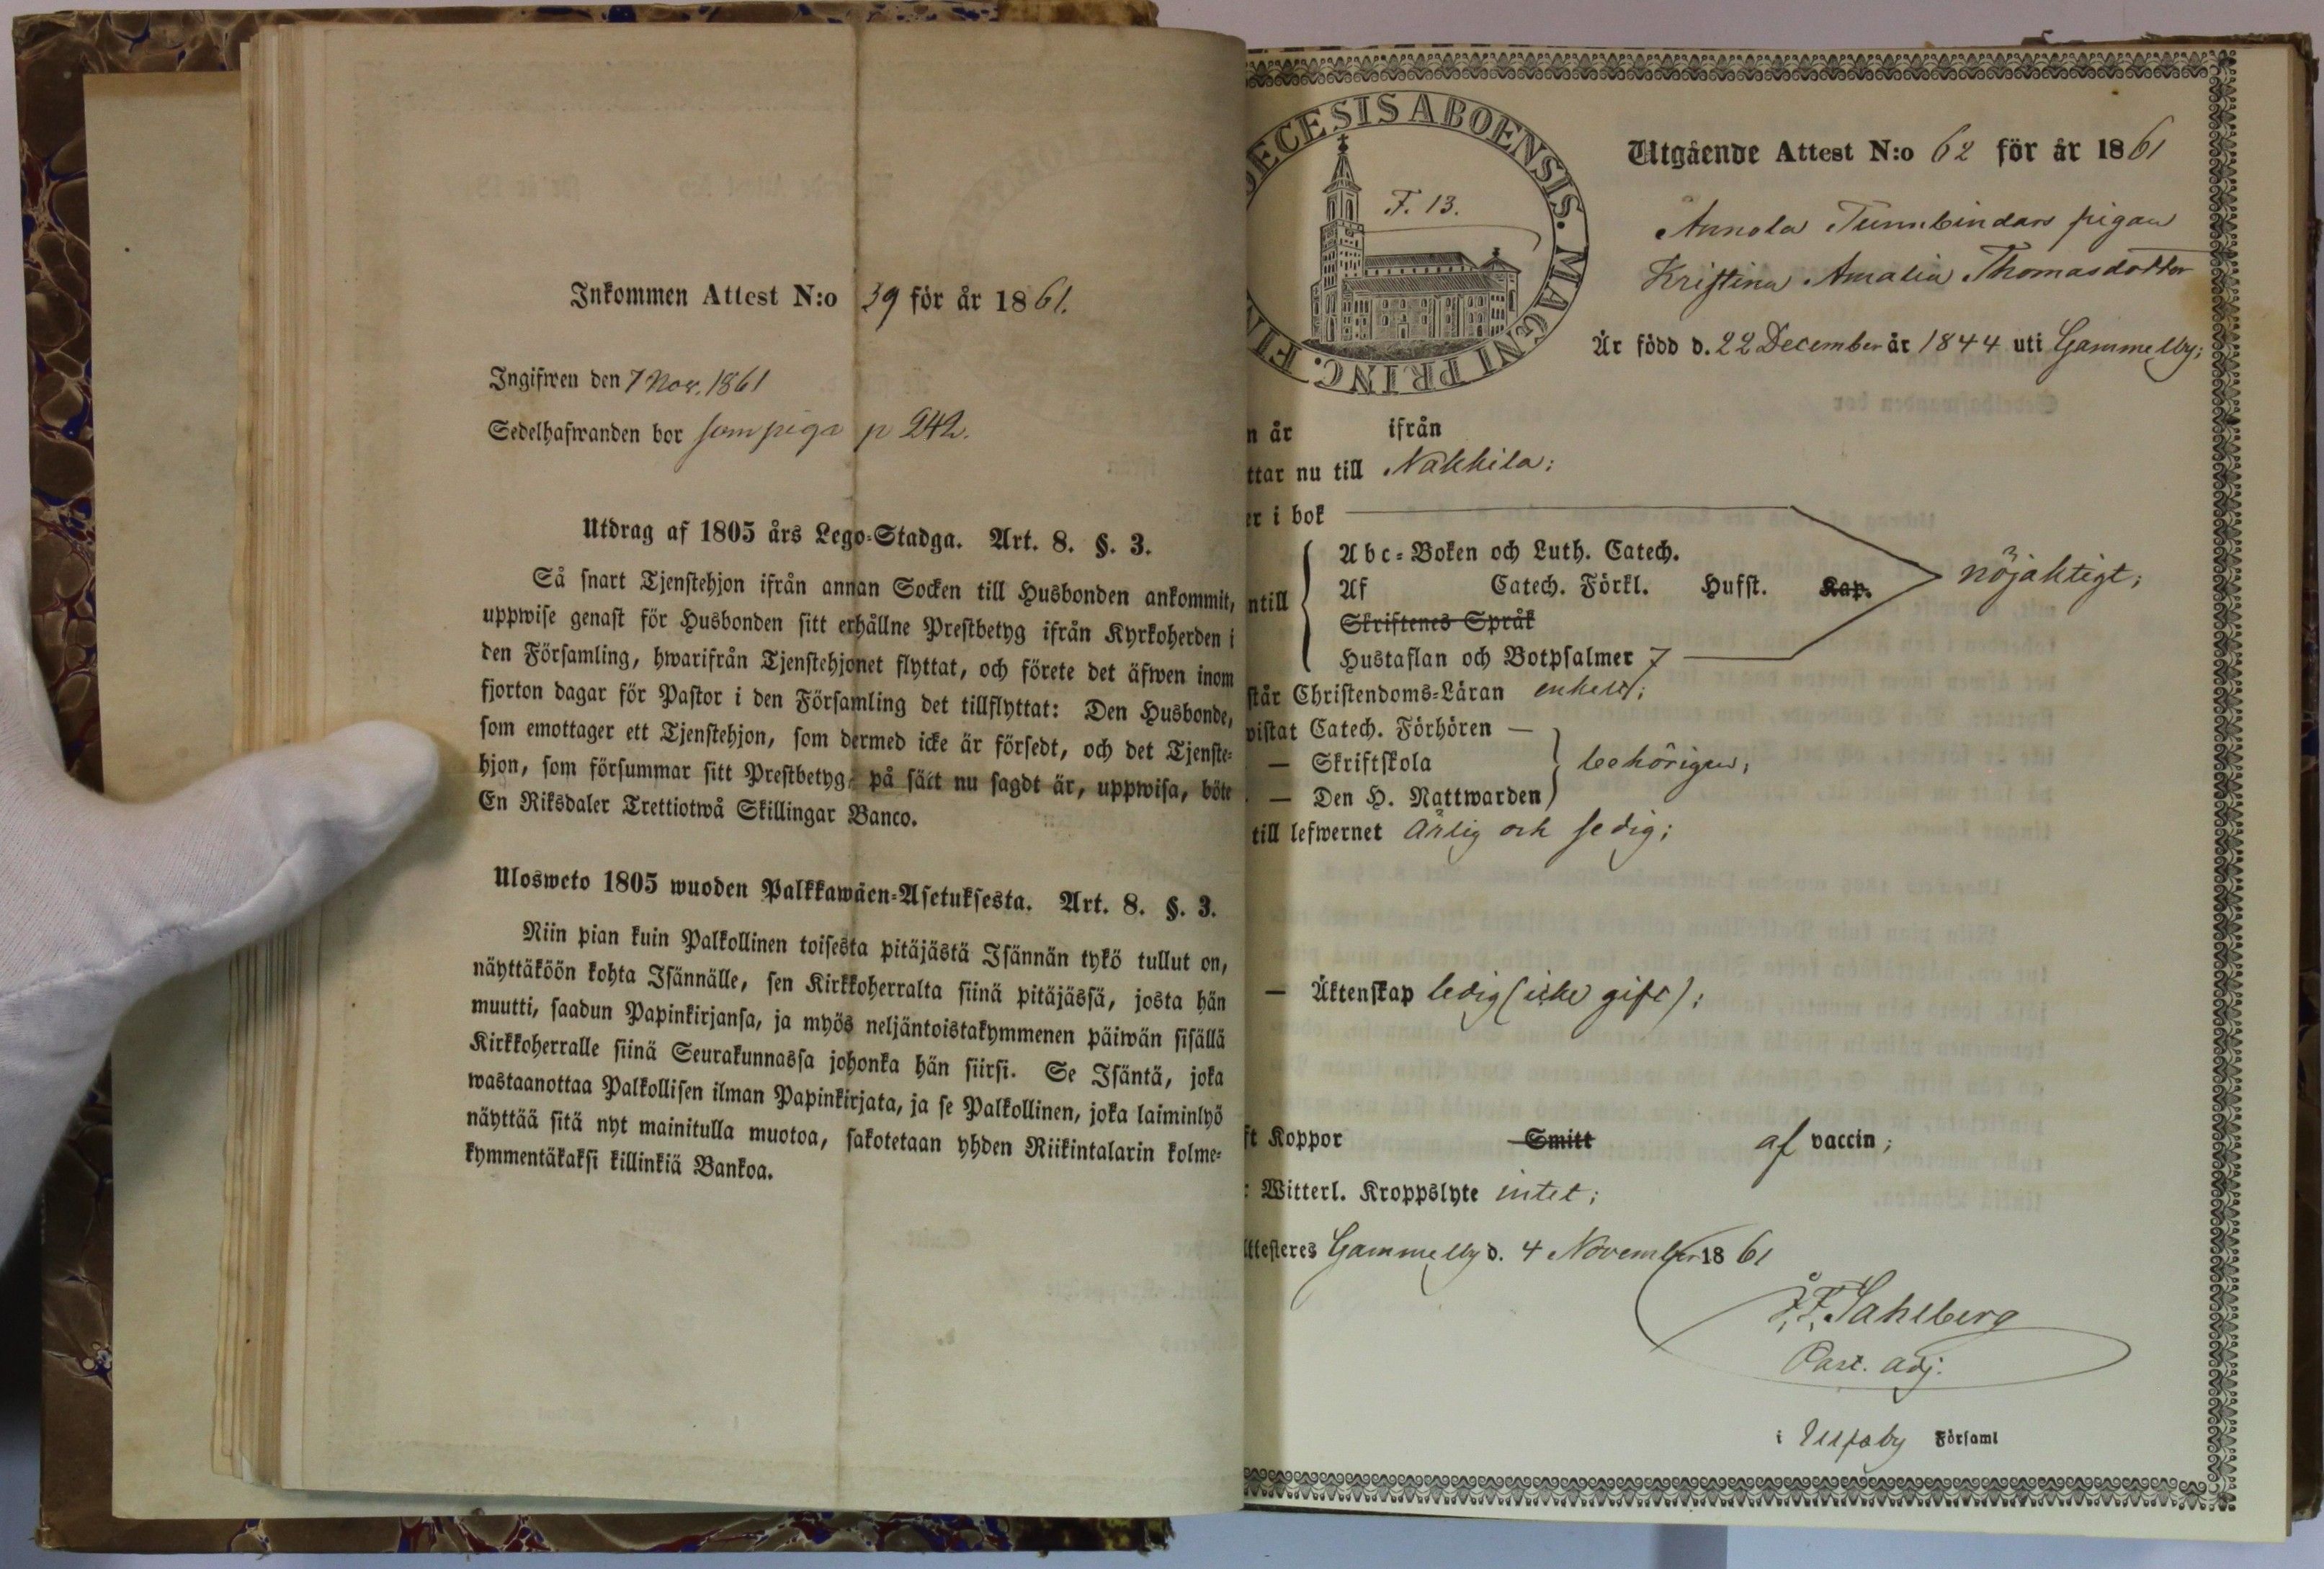 Inkommen Attest N:o 39 för år 1861.
Ingifwen den 7 Nov. 1861
Sedelhafwanden bor som piga p 242.
Utdrag af 1805 års Lego-Stadga. Art. 8. §. 3.
Så snart Tjenstehjon ifrån annan Socken till Husbonden ankommit,
uppwise genast för Husbonden sitt erhållne Prestbetyg ifrån Kyrkoherden i
den Församling, hwarifrån Tjenstehjonet flyttat, och förete det äfwen inom
fjorton dagar för Pastor i den Församling det tillflyttat: Den Husbonde,
som emottager ett Tjenstehjon, som dermed icke är försedt, och det Tjenste-
hjon, som försummar sitt Prestbetyg, på sätt nu sagdt är, uppwisa, böte
En Riksdaler Trettiotwå Skillingar Banco.
Ulosweto 1805 wuoden Palkkawäen-Asetuksesta. Art. 8. §. 3.
Niin pian kuin Palkollinen toisesta pitäjästä Isännän tykö tullut on,
näyttäköön kohta Isännälle, sen Kirkkoherralta siinä pitäjässä, josta hän
muutti, saadun Papinkirjansa, ja myös neljäntoistakymmenen päiwän sisällä
Kirkkoherralle siinä Seurakunnassa johonka hän siirsi. Se Isäntä, joka
wastaanottaa Palkollisen ilman Papinkirjata, ja se Palkollinen, joka laiminlyö
näyttää sitä nyt mainitulla muotoa, sakotetaan yhden Riikintalarin kolme-
kymmentäkaksi killinkiä Bankoa.
ECESIS ABOENSIS. MAGNI PRINC. FIN
F. 13.
Utgående Attest N:o 62 för år 1861
Annola Tunnbindars pigan
Kristina Amalia Thomasdotter
Är född d. 22 December år 1844 uti Gammelby;
n år ifrån
ttar nu till Nakkila;
er i bok
Abc-Boken och Luth. Catech.
ntill Af Catech. Förkl. Husst. Kap. nöjaktigt;
Skriftenes Språk
Hustaflan och Botpsalmer 7
står Christendoms-Läran enkelt;
vistat Catech. Förhören —
— Skriftskola behörigen;
— Den H. Nattwarden
till lefwernet Ärlig och sedig;
— Äktenskap ledig (icke gift);
ft Koppor Smitt af vaccin;
: Witterl. Kroppslyte intet;
ttesteres Gammelby d. 4 November 1861
F. Sahlberg
Past. adj.
i Ulfsby Församl